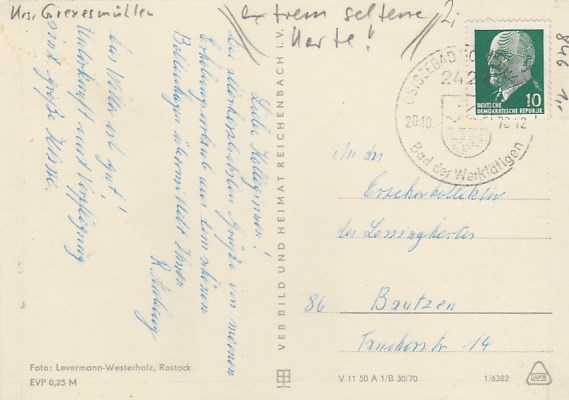 Krs. Grevesmühlen
extrem seltene
Karte!
2,-
846
1,-
Liebe Kolleginnen!
Die allerherzlichsten Grüße von meinem
Erholungsurlaub aus dem schönen
Boltenhagen übermittelt Ihnen
R.
Das Wetter ist gut!
Unterkunft und Verpflegung
sind große Klasse.
VEB BILD UND HEIMAT REICHENBACH I. V.
OSTSEEBAD
2422
20.10. 70-12
Bad der Werktätigen
DEUTSCHE
DEMOKRATISCHE REPUBLIK
10
An das
Erzieherkollektiv
des Lessinghortes
86 Bautzen
14
Foto: Levermann-Westerholz, Rostock
EVP 0,25 M
V 11 50 A 1/B 30/70
1/6382